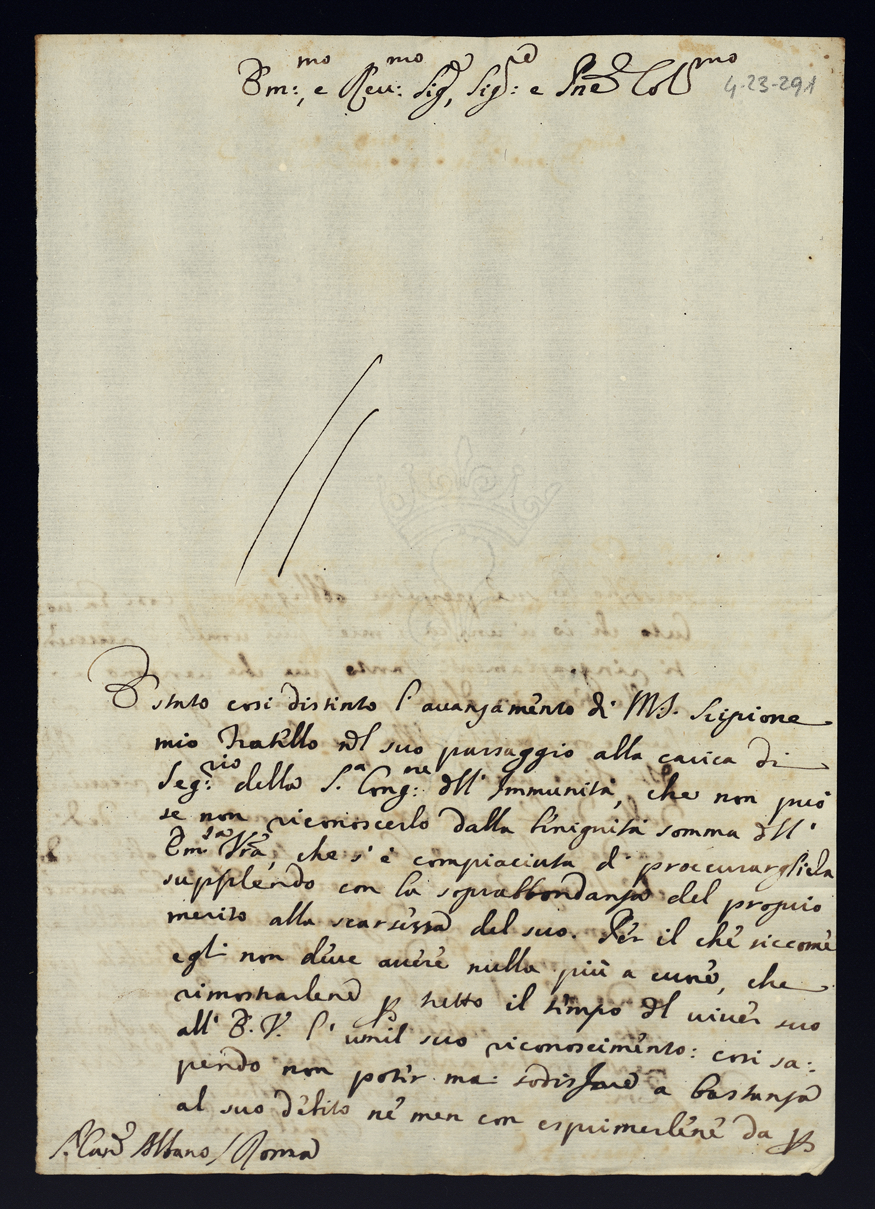 Em:mo, e Reu:mo Sigr, Sigr:e e Pne Col:mo
4-23-291
È stato così distinto l'auanzamento di M.S. Scipione
mio Fratello nel suo passaggio alla carica di
Seg:rio della S.a Cong:ne dell'Immunità, che non può
se non riconoscerlo dalla benignità somma dell'
Em:sa Vra, che s'è compiaciuta di proccurargliela
supplendo con la soprabbondanza del proprio
merito alla scarsezza del suo. Per il che siccome
egli non deue auere nulla più a cuore, che
rimostrarlene p tutto il tempo del uiuer suo
all'E.V. l'umil suo riconoscimento: così sa:
pendo non poter ma: sodisfare a bastanza
al suo debito nè men con esprimerlene da p
S.r Card Albano / Roma